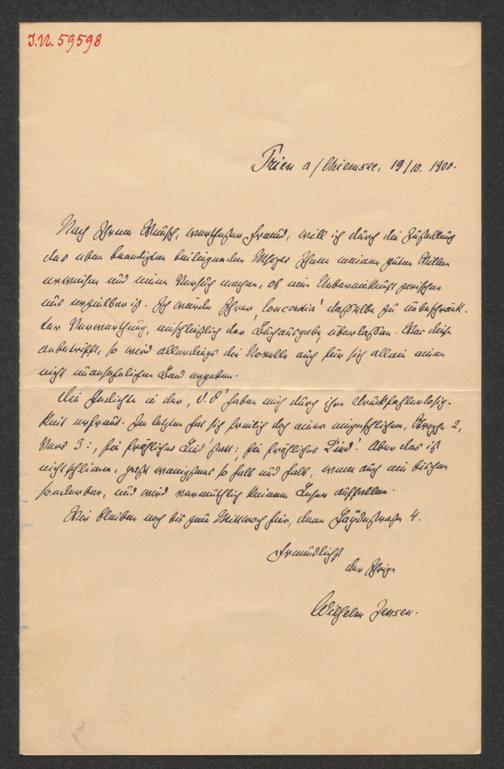 J.N. 59598
Prien a/Chiemsee, 19/10. 1900.
Nach Ihrem Wunsch, werthester Freund, will ich durch die Zusendung
des eben beendigten beiliegenden Ihnen meinen guten Willen
erweisen und einen Versuch machen, ob ein Uebereinkunft zwischen
uns erzielbar ist. Ich würde Ihrer 'Concordia' dasselbe zu unbeschränk-
ter Verwerthung, einschließlich der Buchausgabe, überlassen. Was diese
anbetrifft, so wird allerdings die Novelle auch für sich allein einen
nicht unansehnlichen Band ergeben.
Die Gedichte in der haben mich durch ihre Druckfehlerlosig-
keit erfreut. Im letzten hat sich freilich doch einer eingeschlichen, Strophe 2,
Vers 3: ein fröhliches Lied statt: ein fröhliches Aber das ist
nicht schlimm, paßt wenigstens so halb und halb, wenn auch ein bischen
sonderbar, und wird vermuthlich keinem Leser auffallen.
Wir bleiben noch bis zum Mittwoch hier, dann 4.
Freundlichst
der Ihrige
Wilhelm Jensen.